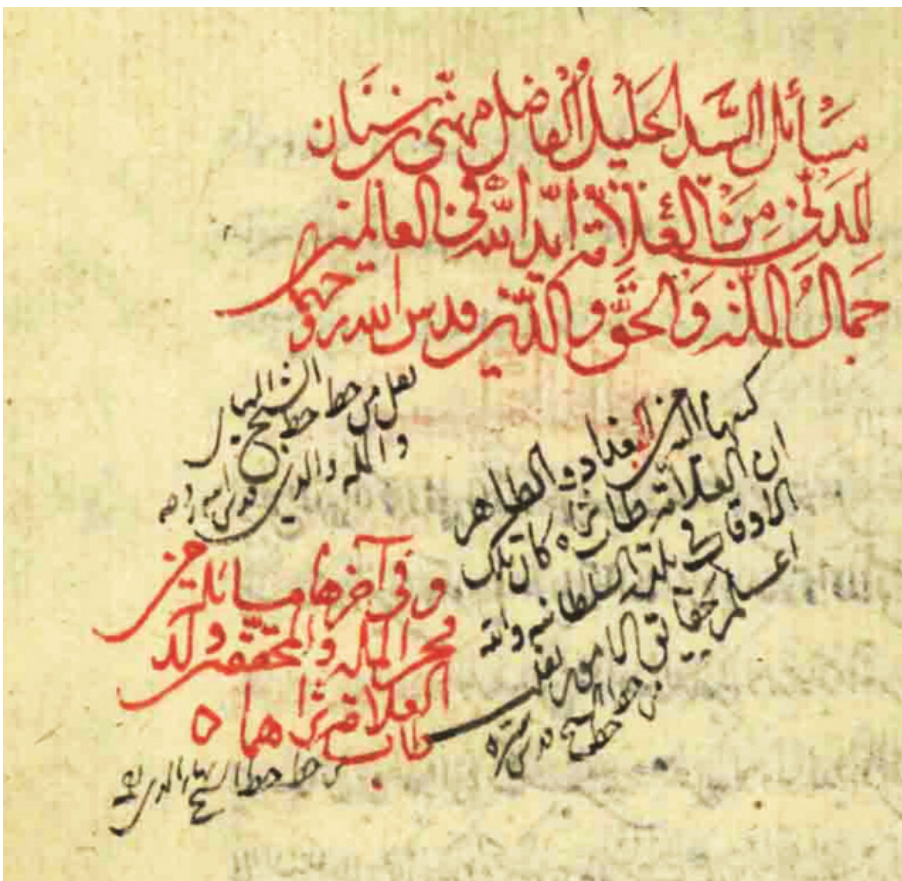 مسائل السيد الجليل الفاضل مهنى بن سنان
المدني من العلامة آية الله في العالمين
جمال الملة والحق والدين قدس الله روحهما
نقل من خط خط الشيخ البهاء
والملة والدين قدس الله روحه
كتبها الى بغداد والظاهر
ان العلامة طاب ثراه كان تلك
الاوقات في بلدة السلطانية والله
اعلم بحقائق الامور نقلت
من خط خط الشيخ قدس سره
وفي آخرها مسائله من
فخر الملة والمحققين ولد
العلامة طاب ثراهما ه
من خط خط الشيخ بهاء الدين